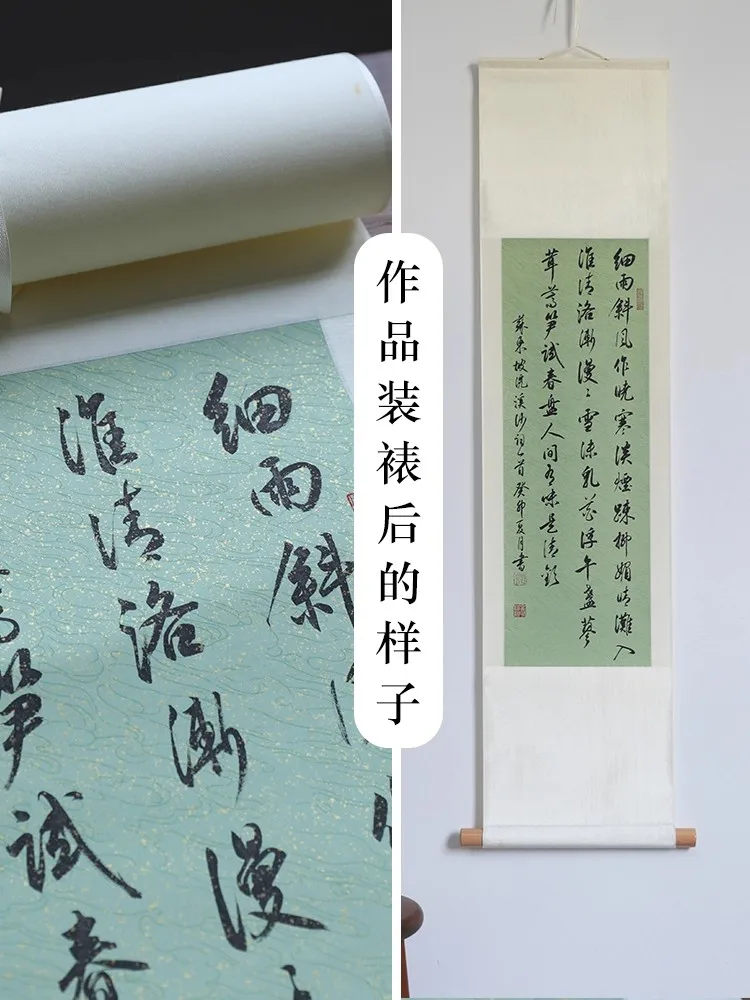 作品装裱后的样子
细雨斜
淮清洛渐漫〻
笋试春
细雨斜风作晓寒淡煙疎柳媚晴滩入
淮清洛渐漫〻雪沫乳花浮午盏蓼
茸蒿笋试春盘人间有味是清欢
苏东坡浣溪沙词一首癸卯夏月书